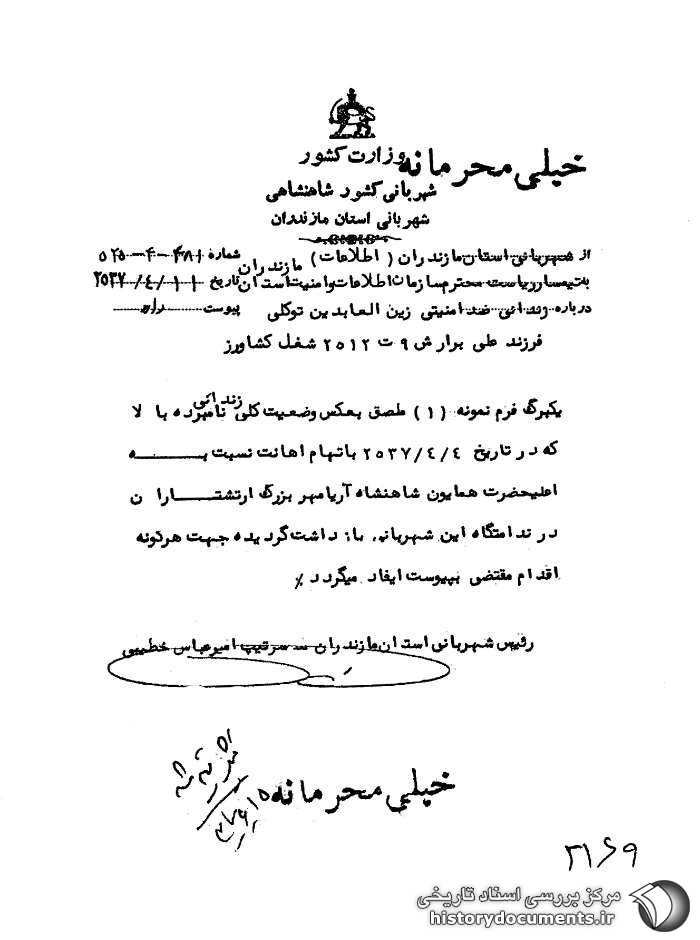 خیلی محرمانه
وزارت کشور
شهربانی کشور شاهنشاهی
شهربانی استان مازندران
از شهربانی استان مازندران ( اطلاعات ) شماره ۴۸۱-۴-۵۲۵
به تیمسار ریاست محترم سازمان اطلاعات و امنیت استان مازندران تاریخ ۲۵۳۷/۴/۱۱
درباره زندانی ضد امنیتی زین العابدین توکلی پیوست دارد
فرزند علی برار ش ۹ ت ۲۵۱۲ شغل کشاورز
یکبرگ فرم نمونه (۱) ملصق بعکس وضعیت کلی زندانی نامبرده بالا
که در تاریخ ۲۵۳۷/۴/۴ باتهام اهانت نسبت به
اعلیحضرت همایون شاهنشاه آریامهر بزرگ ارتشتاران
در ندامتگاه این شهربانی بازداشت گردیده جهت هرگونه
اقدام مقتضی بپیوست ایفاد میگردد٪
رئیس شهربانی استان مازندران سرتیپ امیرعباس خطیبی
خیلی محرمانه
۲۱۶۹
مرکز بررسی اسناد تاریخی
historydocuments.ir